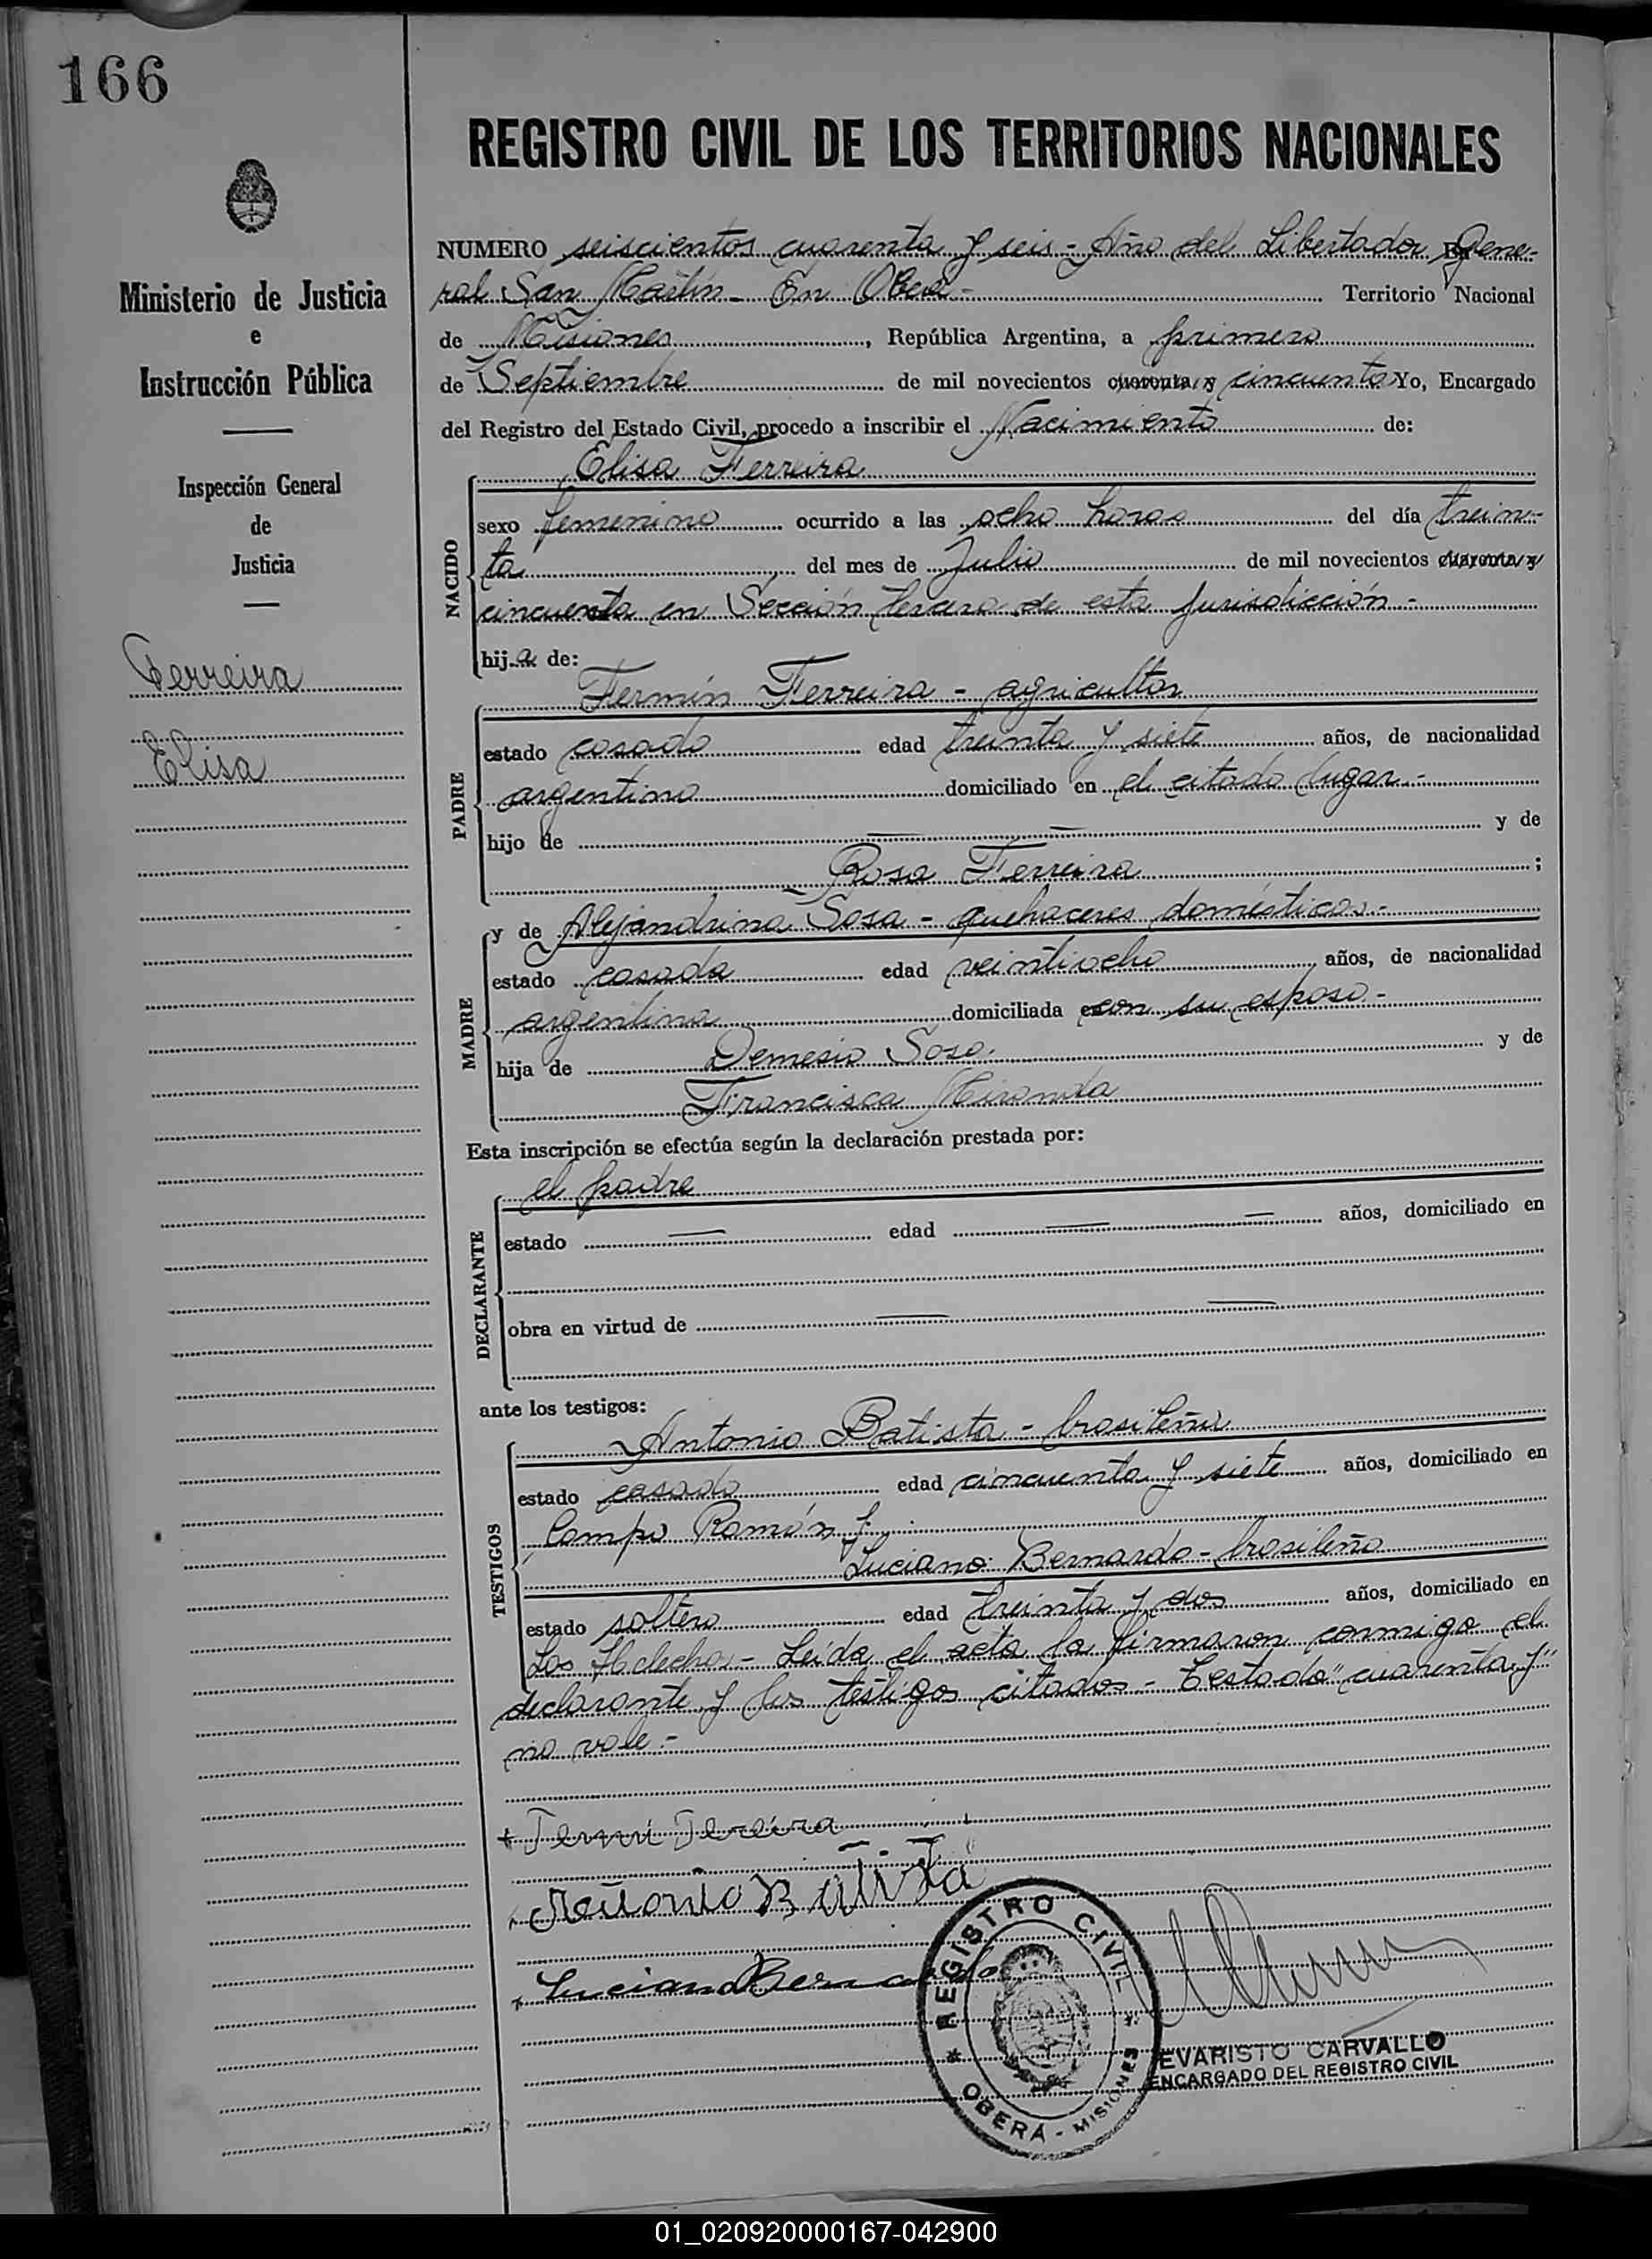 166
REGISTRO CIVIL DE LOS TERRITORIOS NACIONALES
Ministerio de Justicia
e
Instrucción Pública
Inspección General
de
Justicia
Ferreira
Elisa
NUMERO seiscientos cuarenta y seis - Año del Libertador Gene-
ral San Martín - En Oberá - Territorio Nacional
de Misiones, República Argentina, a primero
de Septiembre de mil novecientos cuarenta y cincuenta Yo, Encargado
del Registro del Estado Civil, procedo a inscribir el Nacimiento de:
Elisa Ferreira
NACIDO
sexo femenino ocurrido a las ocho horas del día trein-
ta del mes de Julio de mil novecientos cuarenta y
cincuenta en Sección tercera de esta jurisdicción -
hija de:
Fermín Ferreira - agricultor
PADRE
estado casado edad treinta y siete años, de nacionalidad
argentino domiciliado en el citado lugar -
hijo de — — y de
Rosa Ferreira ;
MADRE
y de Alejandrina Sosa - quehaceres domésticos -
estado casada edad veintiocho años, de nacionalidad
argentina domiciliada con su esposo -
hija de Demesio Sosa y de
Francisca Miranda
Esta inscripción se efectúa según la declaración prestada por:
el padre
DECLARANTE
estado — edad — — años, domiciliado en
obra en virtud de — —
ante los testigos:
Antonio Batista - brasileño
TESTIGOS
estado casado edad cincuenta y siete años, domiciliado en
Campo Ramón y
Luciano Bernardo - brasileño
estado soltero edad treinta y dos años, domiciliado en
Los Helechos - Leída el acta la firmaron conmigo el
declarante y los testigos citados - Testado "cuarenta y"
no vale -
Luciano Bernardo
REGISTRO CIVIL
OBERÁ - MISIONES
EVARISTO CARVALLO
ENCARGADO DEL REGISTRO CIVIL
01_020920000167-042900